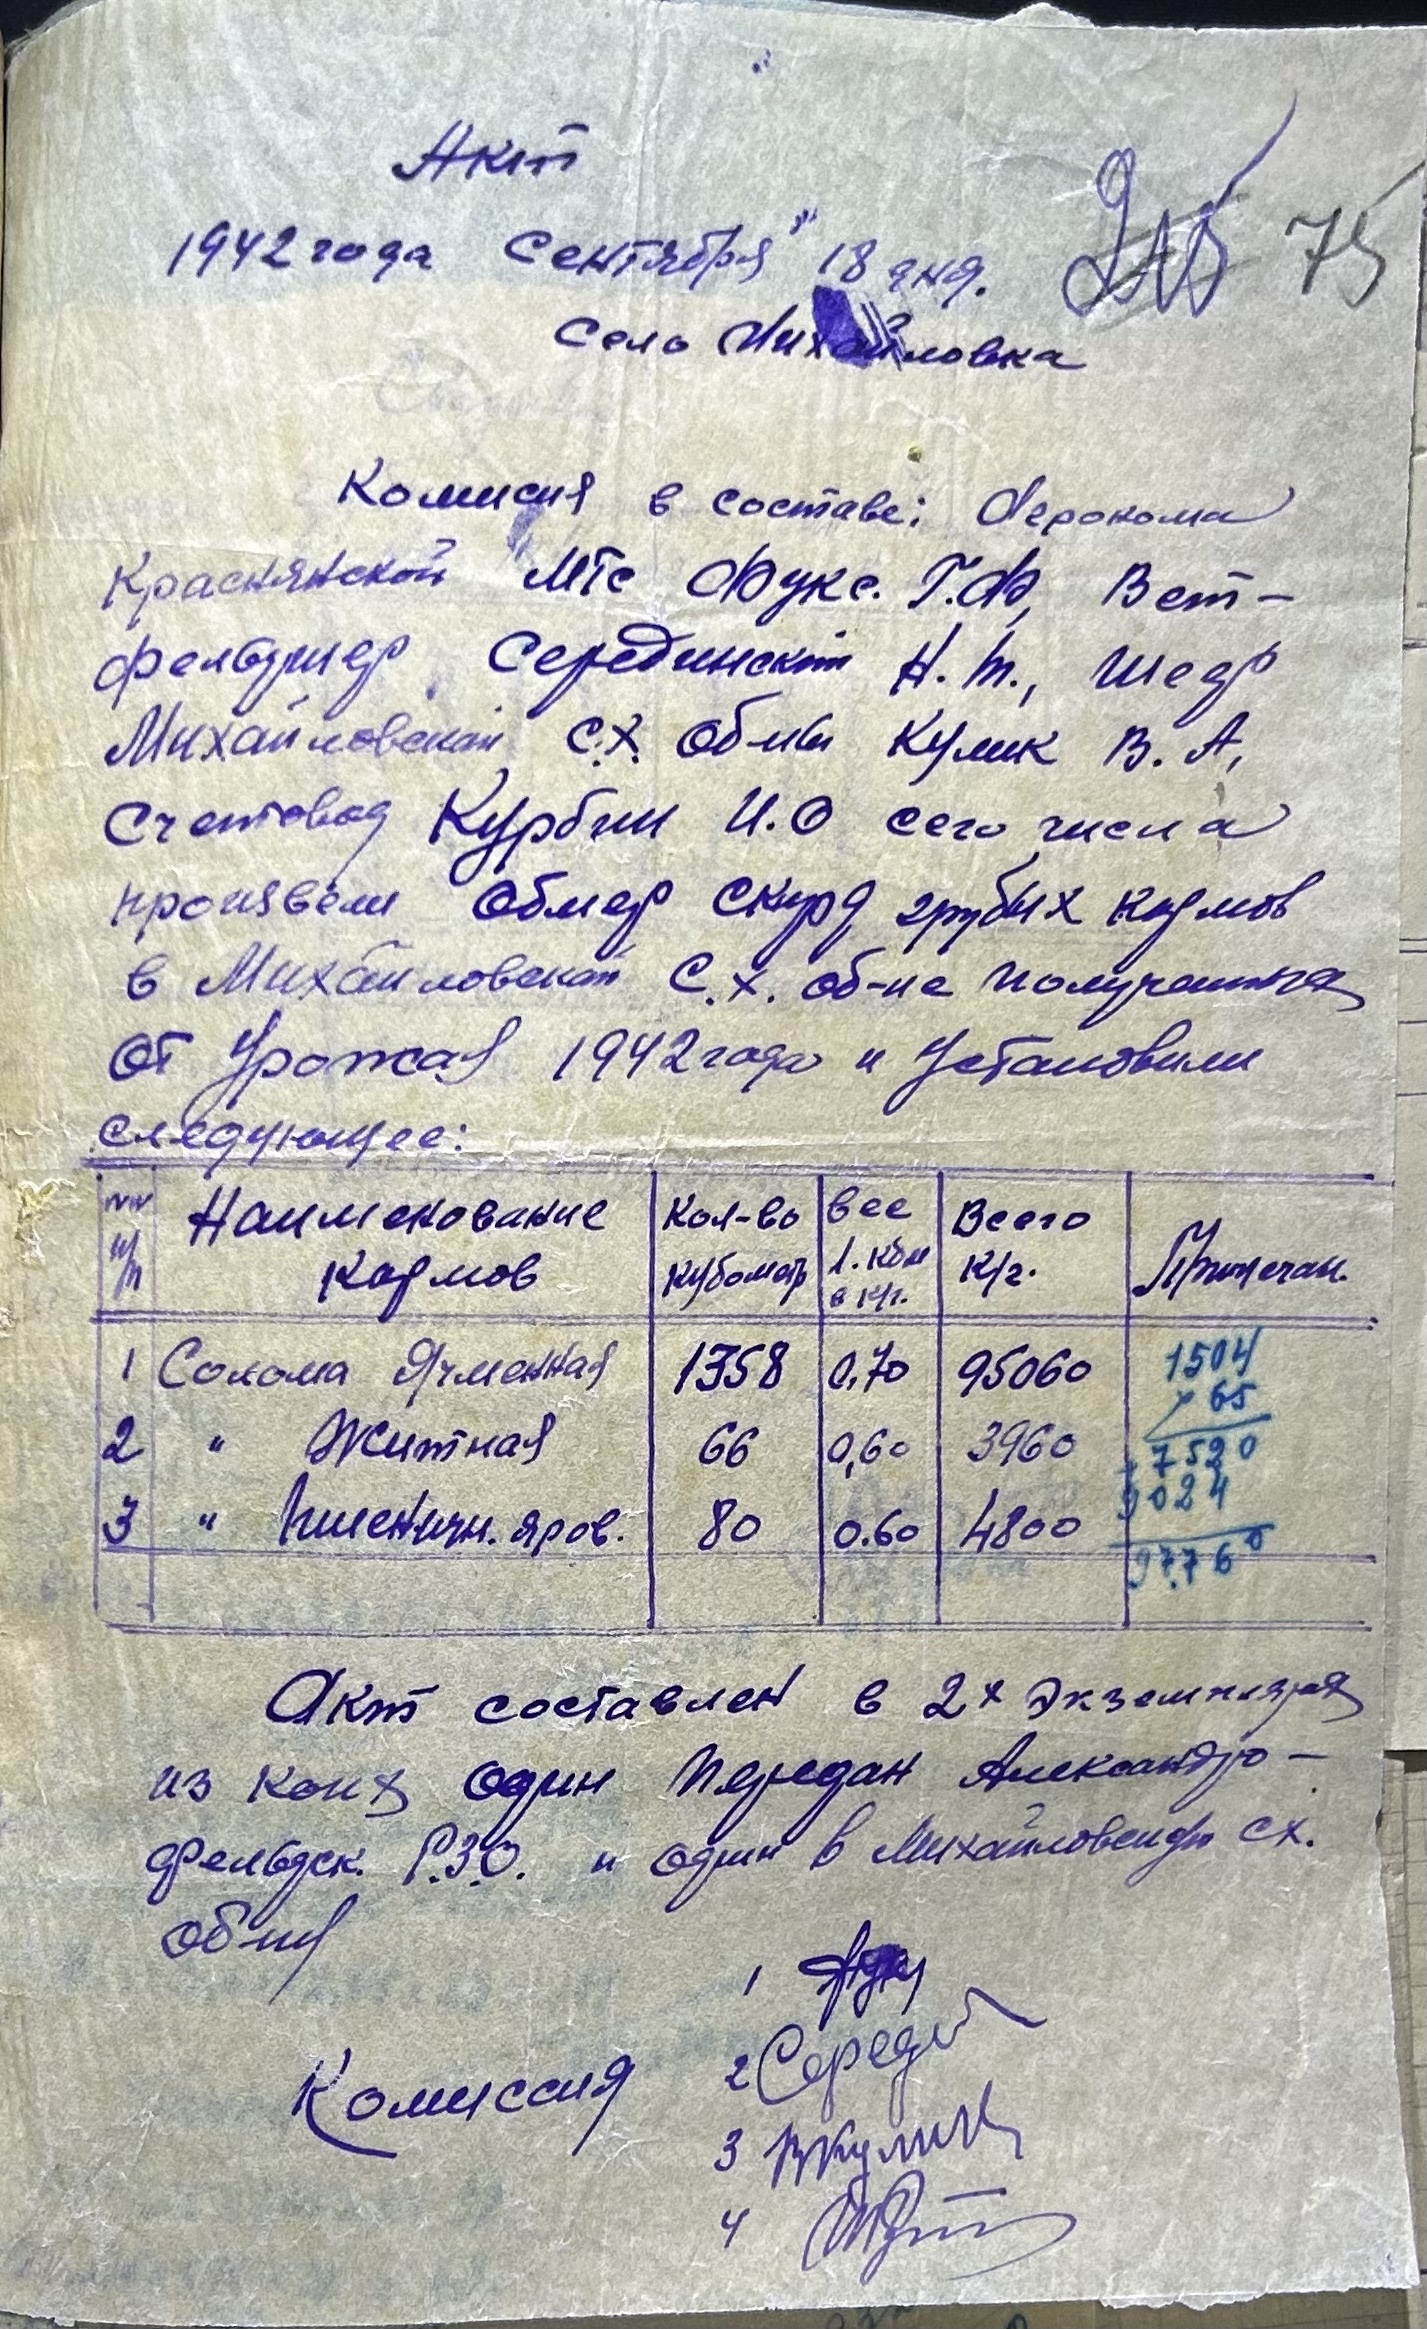 Акт
1942 года Сентября "18" дня.
75
Село Михайловка
Комисия в составе: Агронома
Краснянской МТС Фукс. Г.Ф, Вет-
фельдшер Серединский Н. Т.,
Михайловской С.Х. Об-ны Кулик В. А,
Счетовод Курбин И.О сего числа
произвели обмер скирд грубых кормов
в Михайловской С.Х. об-не полученных
от Урожая 1942 года и Установили
следующее:
№№ п/п Наименование кормов Кол-во кубометр Вес 1. кбм в к/г. Всего к/г. Примечан.
1 Солома Ячменная 1358 0,70 95060
2 " Житная 66 0,60 3960
3 " Пшеничн. яров. 80 0.60 4800
1504
65
7520
9024
97.760
Акт составлен в 2х экземплярах
из коих один передан Александро-
фельдск. Р.З.О. и один в Михайловскую сх.
об-ну
Комиссия
1
2 Серед
3 ВКулик
4